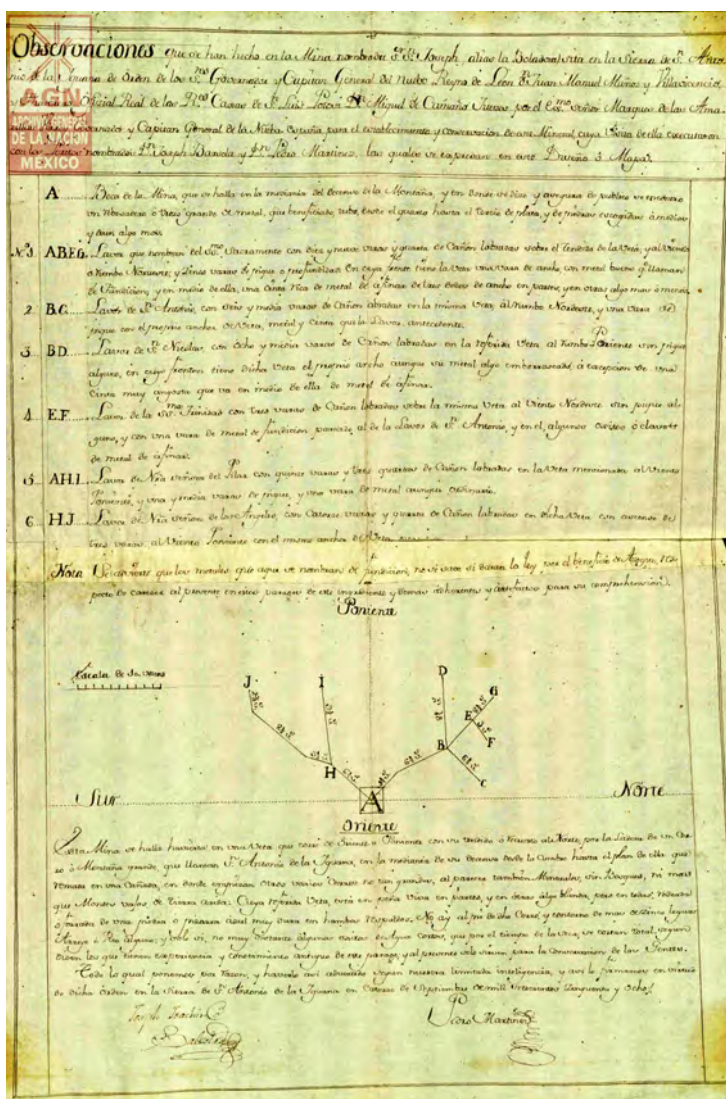 Observaciones que se han hecho en la Mina nombrada Sr. Sn. Joseph, alias la Voladora, sita en la Sierra de Sn. Anto-
nio de la Iguana de orden de los Sres. Governador y Capitan General del Nuebo Reyno de Leon Dn. Juan Manuel Muñoz y Villavicencio
y Oficial Real de las Rs. Caxas de Sn. Luis Potosi Dn. Miguel de Camaño Jueces por el Exmo. Señor Marques de las Ama-
rillas Governador y Capitan General de la Nueba España para el establecimiento y conservacion de este Mineral, cuya Vista de ella executaron
con los nombrados Dn. Joseph y Dn. Pedro Martinez, las quales se expresan en este Diseño o Mapa.
AGN
ARCHIVO GENERAL
DE LA NACIÓN
MÉXICO
A Boca de la Mina, que se halla en la mediania del decenso de la Montaña, y en donde
un Reventon o Creston grande de metal, que beneficiado, desde el quarto hasta el tercio de plata, y de piedras escogidas a medias
y aun algo mas.
No. 1 A.B.E.G. Lavor que nombran del SSmo. Sacramento con diez y nueve varas y quarta de Cañon labradas sobre el de la Veta, al Viento
o Rumbo Norueste, y varas de pique o profundidad En cuya frente tiene la Veta una vara de ancho, con metal bueno q. llaman
de Fundicion, y en medio de ella, una Cinta rica de metal de afinar de dedos de ancho en partes, y en otras algo mas o menos.
2 B.C. Lavor de Sn. Antonio, con seis y media varas de Cañon labradas en la misma Veta, al Rumbo Nordeste, y una vara de
pique con el proprio ancho de Veta, metal y Cinta que la Lavor antecedente.
3 B.D. Lavor de Sn. Nicolas, con ocho y media varas de Cañon labradas en la referida Veta al Rumbo Poniente sin pique
alguno, en cuyo fronton tiene dicha Veta el proprio ancho aunque su metal algo emborrascado, a excepcion de una
Cinta muy angosta que va en medio de ella de metal de afinar.
4 E.F. Lavor de la SSma. Trinidad con tres varas de Cañon labradas sobre la misma Veta al Viento Nordeste sin pique al-
guno, y con una vara de metal de fundicion parecido al de la Lavor de Sn. Antonio, y en el, algunos ojitos o clavitos
de metal de afinar.
5 A.H.I. Lavor de Nra. Señora del Pilar con quince varas y tres quartas de Cañon labradas en la Veta mencionada al Viento
Poniente, y una y media varas de pique, y una vara de metal aunque ordinario.
6 H.J. Lavor de Nra. Señora de los Angeles, con Catorce varas y quarta de Cañon labradas en dicha Veta con de
tres varas, al Viento Poniente con el mismo ancho de Veta
Nota que los metales, que aqui se nombran de fundicion, no se save si daran la ley por el beneficio de Azogue, res-
pecto de carecer al presente en estos parages de este ingrediente y demas adherentes y para su comprehension.
Poniente
Escala de 10 varas
J I D G
E
F
H B C
A
Sur Norte
Oriente
Esta Mina se halla en una Veta que corre de Oriente a Poniente con su recuesto al Norte, por la Ladera de un Cer-
ro o Montaña grande, que llaman Sn. Antonio de la Iguana, en la mediania de su decenso desde la Cumbre hasta el plan de ella que
remata en una Cañada, en donde empiezan otros varios Cerros no tan grandes, al parecer tambien Minerales, sin Bosques, ni mas
que Montes vajos, de tierra corta: Cuya referida Veta, está en peña viva en partes, y en otras algo blanda, pero en todas,
de una piedra o pizarra azul muy dura en hambos Respaldos. No ay al pie de dho Cerro, y contorno de mas de cinco leguas
Arroyo o Rio alguno, y solo si, no muy distante algunos ojitos de Agua Cortos, que por el tiempo de la seca, se cortan total, segun
dicen los que tienen experiencia y conocimiento antiguo de este parage, y al presente solo sirven para la Conservacion de las Gentes.
Todo lo qual ponemos por Razon, y haverlo asi segun nuestra limitada inteligencia, y asi lo firmamos en virtud
de dicha orden en la Sierra de Sn. Antonio de la Iguana en de Septiembre de mill setecientos Cinquenta y ocho.
Joseph Joachin
Pedro Martinez